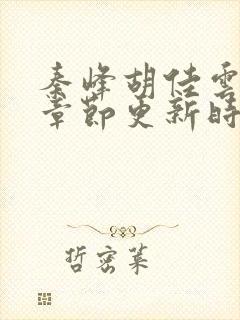 秦峰胡佳雲
章節更新時
哲密萊